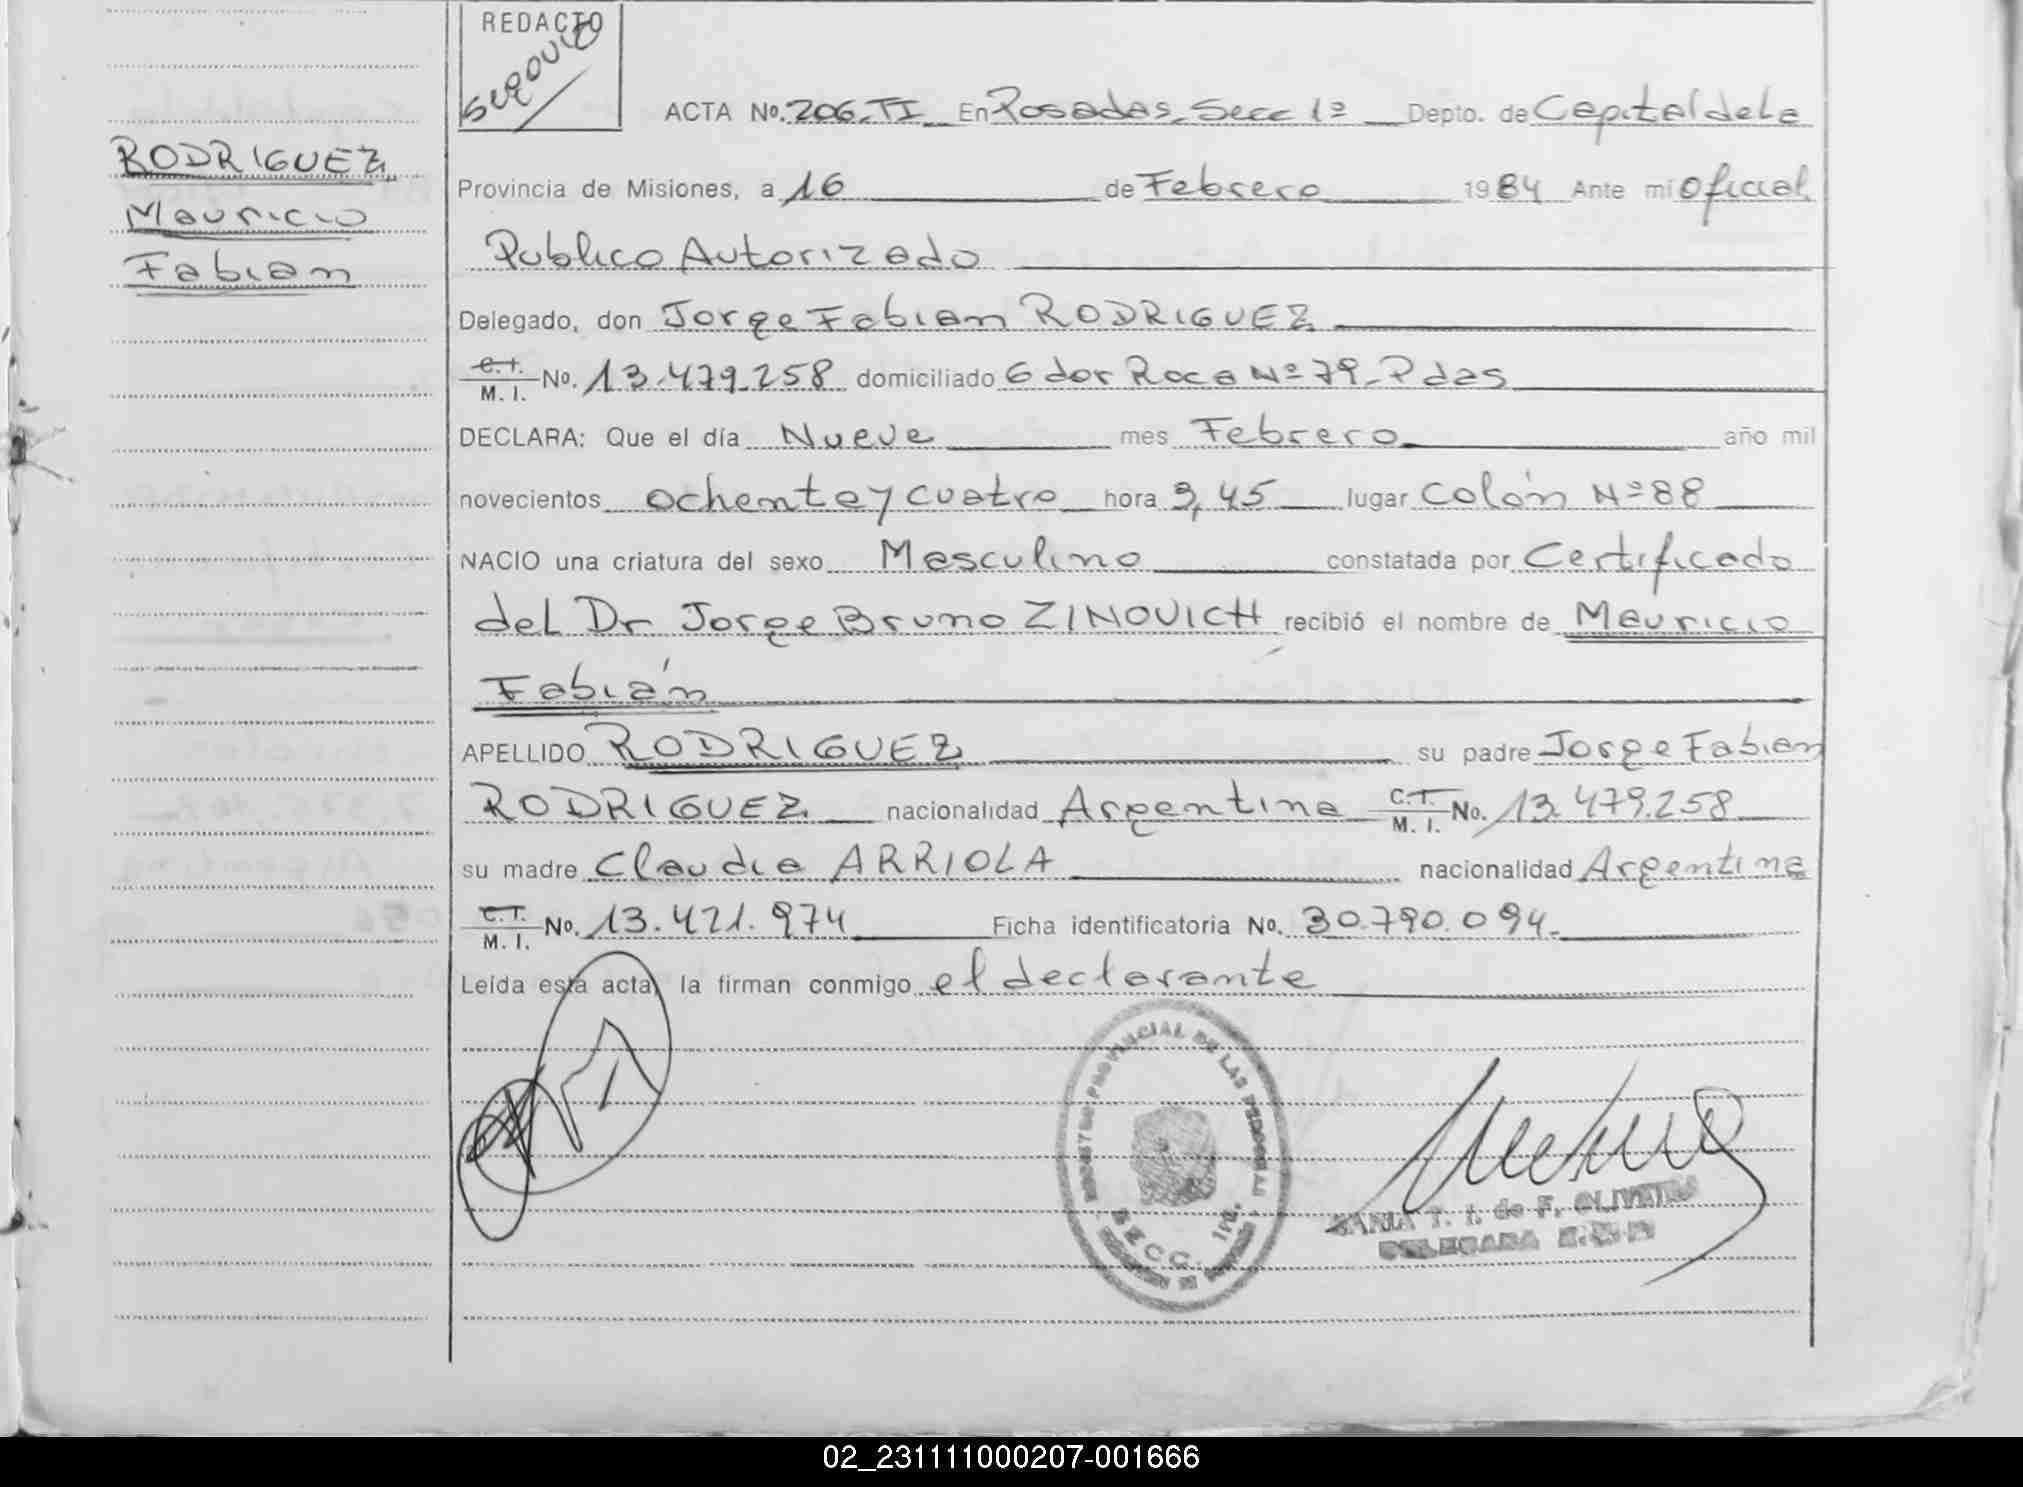 REDACTO
RODRIGUEZ
Mauricio
Fabian
ACTA No. 206-TI En Posadas, Secc 1º Depto. de Capital de la
Provincia de Misiones, a 16 de Febrero 1984 Ante mi Oficial
Publico Autorizado
Delegado, don Jorge Fabian RODRIGUEZ
C.I. M. I. No. 13.479.258 domiciliado Gdor Roca Nº 79-Pdas
DECLARA: Que el día Nueve mes Febrero año mil
novecientos ochenta y cuatro hora 9,45 lugar Colón Nº 88
NACIO una criatura del sexo Masculino constatada por Certificado
del Dr Jorge Bruno ZINOVICH recibió el nombre de Mauricio
Fabián
APELLIDO RODRIGUEZ su padre Jorge Fabian
RODRIGUEZ nacionalidad Argentina C.I. M. I. No. 13.479.258
su madre Claudia ARRIOLA nacionalidad Argentina
C.I. M. I. No. 13.421.974 Ficha identificatoria No. 30.790.094-
Leída esta acta, la firman conmigo el declarante
REGISTRO PROVINCIAL DE LAS PERSONAS
SECC. 1ra.
T. I. de F. OLIVEIRA
DELEGADA
02_231111000207-001666